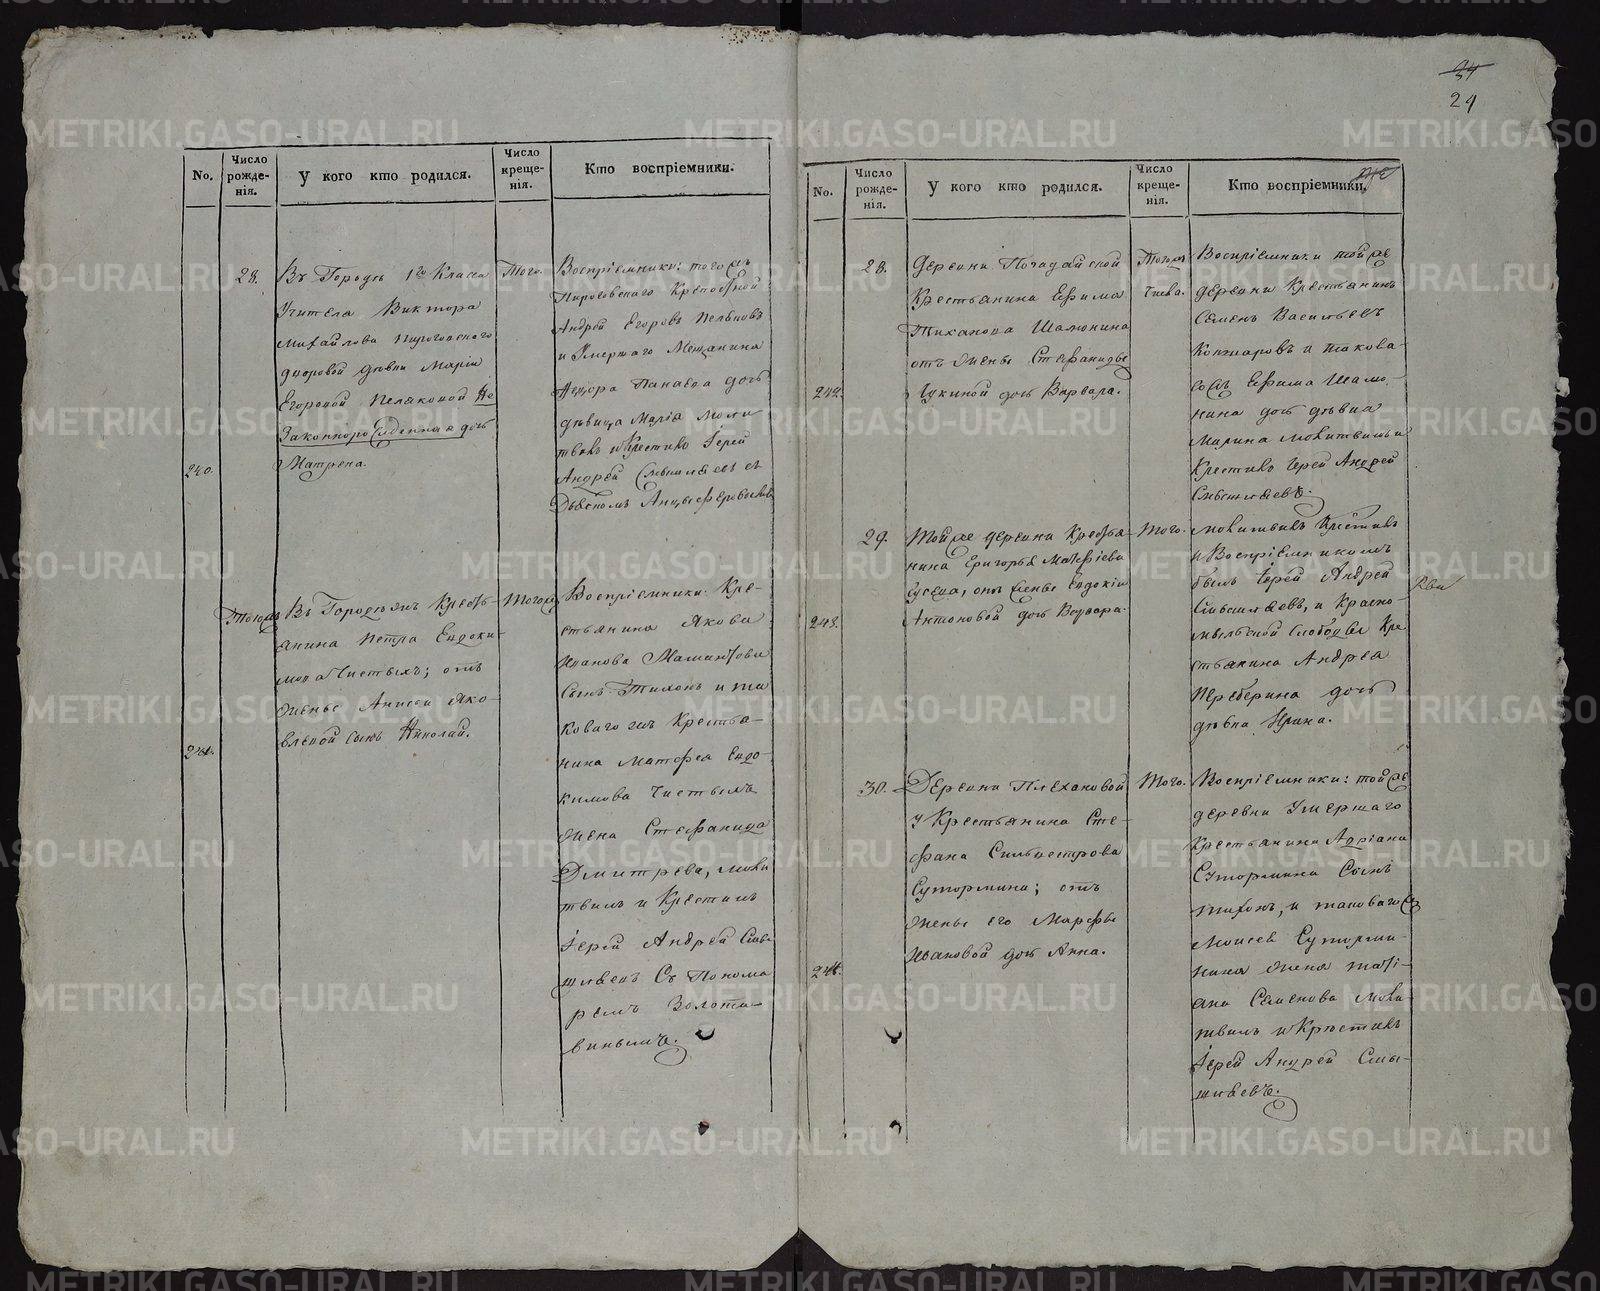 34
24
No.
Число рожде-нія.
У кого кто родился.
Число креще-нія.
Кто воспріемники.
28.
Въ Городѣ 1го Класса
Учителя Виктора
Михайлова Пироговского
дворовой дѣвки Маріи
Егоровой Пеляковой Не
Законнорожденная дочь
Матрена.
240.
Того.
Воспріемники: тогожъ
Пироговскаго Крепостной
Андрей Егоровъ
и Умершаго Мещанина
Панаева дочь
дѣвица Марія Моли
твилъ и Крестилъ Іерей
Андрей Смышляевъ съ
Тогожъ
Въ Городѣ Кресть-
янина Петра Евдоки-
мова Чистыхъ; отъ
жены Анисьи Яко-
влевой сынъ Николай.
241.
Тогожъ
Воспріемники: Кре-
стьянина Якова
Иванова
Сынъ Тихонъ и та
коваго жъ Крестья-
нина Матфея Евдо-
кимова Чистыхъ
Жена Стефанида
Дмитрева, моли
твилъ и Крестилъ
Іерей Андрей Смы-
шляевъ Съ Понома
ремъ Золота-
винымъ.
No.
Число рожде-нія.
У кого кто родился.
Число креще-нія.
Кто воспріемники.
28.
Деревни
Крестьянина Ефима
Тиханова Шамонина
отъ жены Стефаниды
Лукиной дочь Варвара.
242.
Тогожъ
Числа.
Воспріемники той же
деревни Крестьянинъ
Семенъ Васильевъ
и такова-
гожъ Ефима Шамо-
нина дочь дѣвка
Марина молитвилъ и
Крестилъ Іерей Андрей
Смышляевъ.
29.
Той же деревни Крестья-
нина Григорья Матфіева
Гусева, отъ жены Евдокіи
Антоновой дочь Варвара.
243.
Того.
молитвилъ Крестилъ
и Воспріемникомъ
былъ Іерей Андрей
Смышляевъ, и Красно-
мыльской Слободы Кре
стьянина Андрея
Переберина дочь
дѣвка Ирина.
30.
Деревни Плехановой
у Крестьянина Сте-
фана Сильвестрова
Сутормина; отъ
жены его Марфы
Ивановой дочь Анна.
244.
Того.
Воспріемники: той же
деревни Умершаго
Крестьянина Адріана
Сутормина Сынъ
Тихонъ, и таковагожъ
Моисея Сутorми-
нина жена Тати-
ана Семенова моли-
твилъ и Крестилъ
Іерей Андрей Смы-
шляевъ.
METRIKI.GASO-URAL.RU